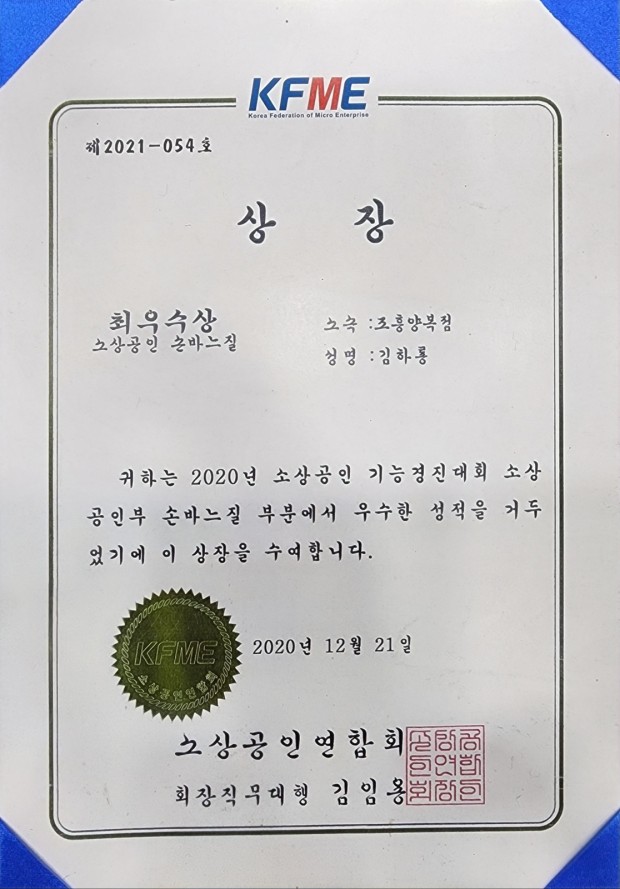 KFME
Korea Federation of Micro Enterprise
제2021-054호
상 장
최우수상
소상공인 손바느질
소속 :조흥양복점
성명 :김하룡
귀하는 2020년 소상공인 기능경진대회 소상
공인부 손바느질 부분에서 우수한 성적을 거두
었기에 이 상장을 수여합니다.
KFME
소상공인연합회
2020년 12월 21일
소상공인연합회
회장직무대행 김임용